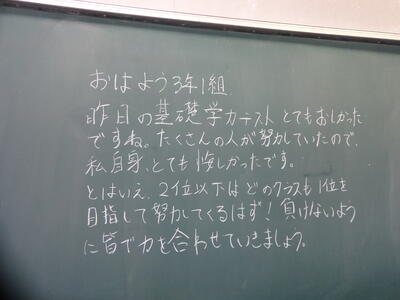 おはよう3年1組
昨日の基礎学力テストとてもおしかった
ですね。たくさんの人が努力していたので、
私自身、とても悔しかったです。
とはいえ、2位以下はどのクラスも1位を
目指して努力してくるはず！負けないよう
に皆で力を合わせていきましょう。